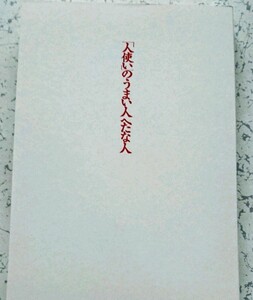 「人使い」のうまい人へたな人